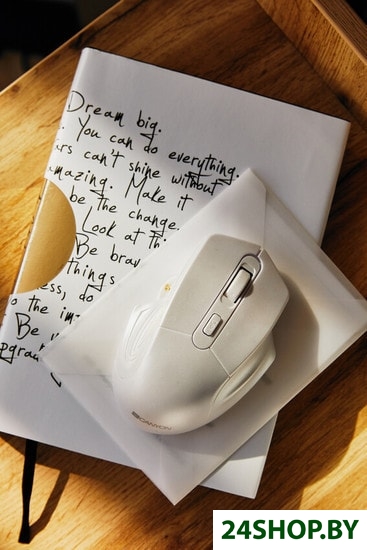 Dream big.
You can do everything.
can't shine without
amazing. Make it
be the change.
Look at th
Be brav
things
ess, do
o the im
Be
pgra
CANYON
24SHOP.BY